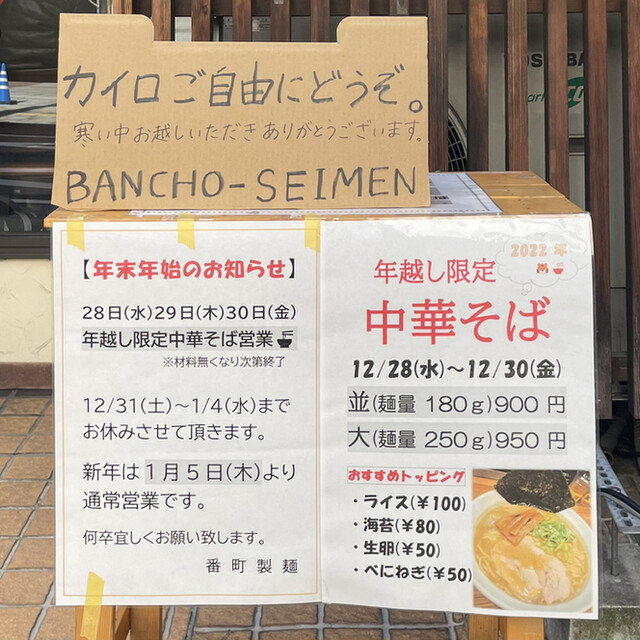 カイロご自由にどうぞ。
寒い中お越しいただきありがとうございます。
BANCHO-SEIMEN
【年末年始のお知らせ】
28日(水)29日(木)30日(金)
年越し限定中華そば営業
※材料無くなり次第終了
12/31(土)～1/4(水)まで
お休みさせて頂きます。
新年は１月５日(木)より
通常営業です。
何卒宜しくお願い致します。
番町製麺
2022年
年越し限定
中華そば
12/28(水)～12/30(金)
並(麺量 180ｇ)900 円
大(麺量 250ｇ)950 円
おすすめトッピング
・ライス(￥100)
・海苔(￥80)
・生卵(￥50)
・べにねぎ(￥50)